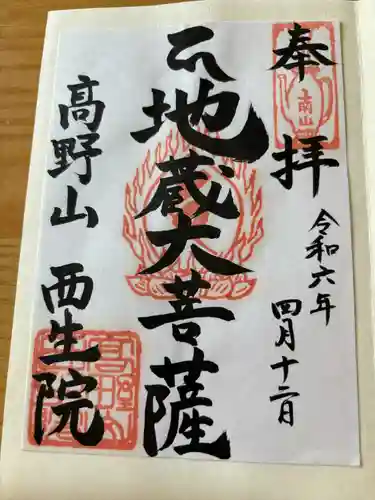 奉拝
令和六年
四月十二日
地蔵大菩薩
高野山
西生院